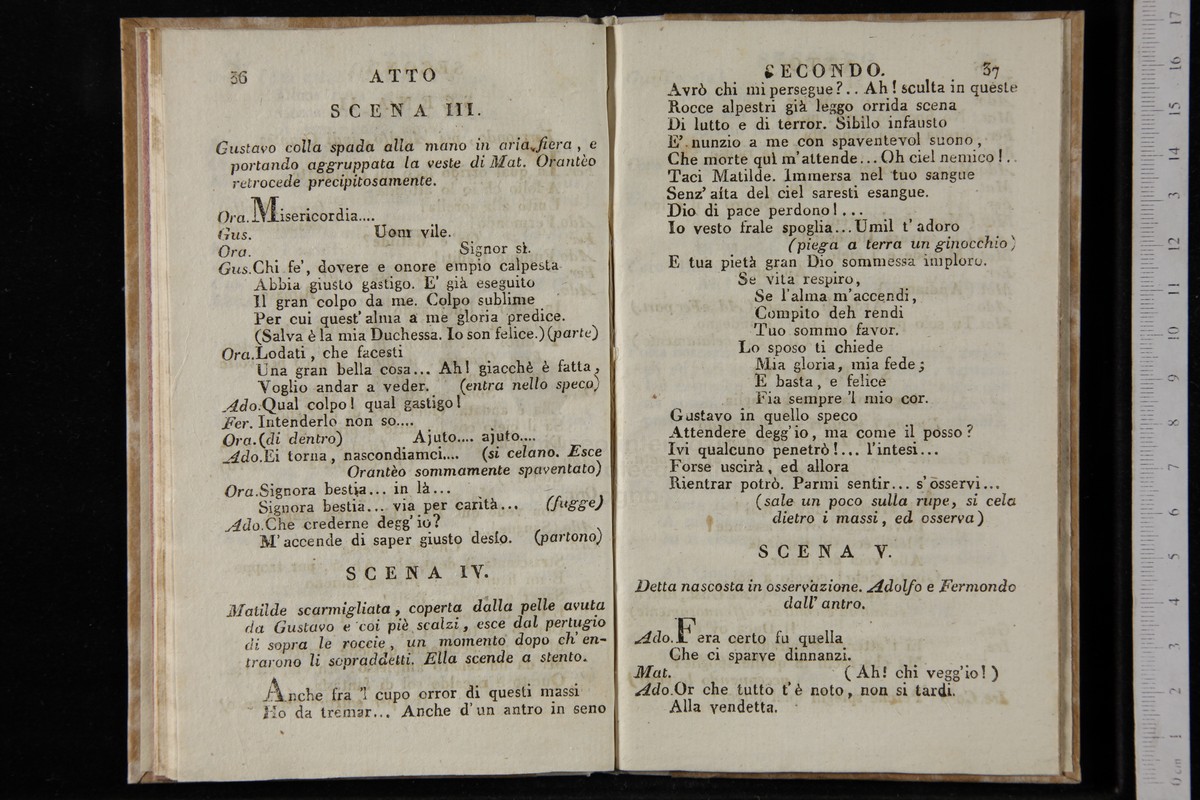 36
ATTO
SCENA III.
Gustavo colla spada alla mano in aria fiera, e
portando aggruppata la veste di Mat. Orantèo
retrocede precipitosamente.
Ora. Misericordia....
Gus. Uom vile.
Ora. Signor sì.
Gus. Chi fe', dovere e onore empio calpesta
Abbia giusto gastigo. E' già eseguito
Il gran colpo da me. Colpo sublime
Per cui quest' alma a me gloria predice.
(Salva è la mia Duchessa. Io son felice.) (parte)
Ora. Lodati, che facesti
Una gran bella cosa... Ah! giacchè è fatta,
Voglio andar a veder. (entra nello speco)
Ado. Qual colpo! qual gastigo!
Fer. Intenderlo non so....
Ora. (di dentro) Ajuto.... ajuto....
Ado. Ei torna, nascondiamci.... (si celano. Esce
Orantèo sommamente spaventato)
Ora. Signora bestia... in là...
Signora bestia... via per carità... (fugge)
Ado. Che crederne degg' io?
M' accende di saper giusto desìo. (partono)
SCENA IV.
Matilde scarmigliata, coperta dalla pelle avuta
da Gustavo e coi piè scalzi, esce dal pertugio
di sopra le roccie, un momento dopo ch' en-
trarono li sopraddetti. Ella scende a stento.
Anche fra 'l cupo orror di questi massi
Ho da tremar... Anche d' un antro in seno
SECONDO.
37
Avrò chi mi persegue?.. Ah! sculta in queste
Rocce alpestri già leggo orrida scena
Di lutto e di terror. Sibilo infausto
E' nunzio a me con spaventevol suono,
Che morte quì m' attende... Oh ciel nemico!..
Taci Matilde. Immersa nel tuo sangue
Senz' aita del ciel saresti esangue.
Dio di pace perdono!...
Io vesto frale spoglia... Umil t' adoro
(piega a terra un ginocchio)
E tua pietà gran Dio sommessa imploro.
Se vita respiro,
Se l'alma m'accendi,
Compito deh rendi
Tuo sommo favor.
Lo sposo ti chiede
Mia gloria, mia fede;
E basta, e felice
Fia sempre 'l mio cor.
Gustavo in quello speco
Attendere degg' io, ma come il posso?
Ivi qualcuno penetrò!... l'intesi...
Forse uscirà, ed allora
Rientrar potrò. Parmi sentir... s' osservi...
(sale un poco sulla rupe, si cela
dietro i massi, ed osserva)
SCENA V.
Detta nascosta in osservazione. Adolfo e Fermondo
dall' antro.
Ado. Fera certo fu quella
Che ci sparve dinnanzi.
Mat. (Ah! chi vegg'io!)
Ado. Or che tutto t' è noto, non si tardi.
Alla vendetta.
0 cm 1 2 3 4 5 6 7 8 9 10 11 12 13 14 15 16 17